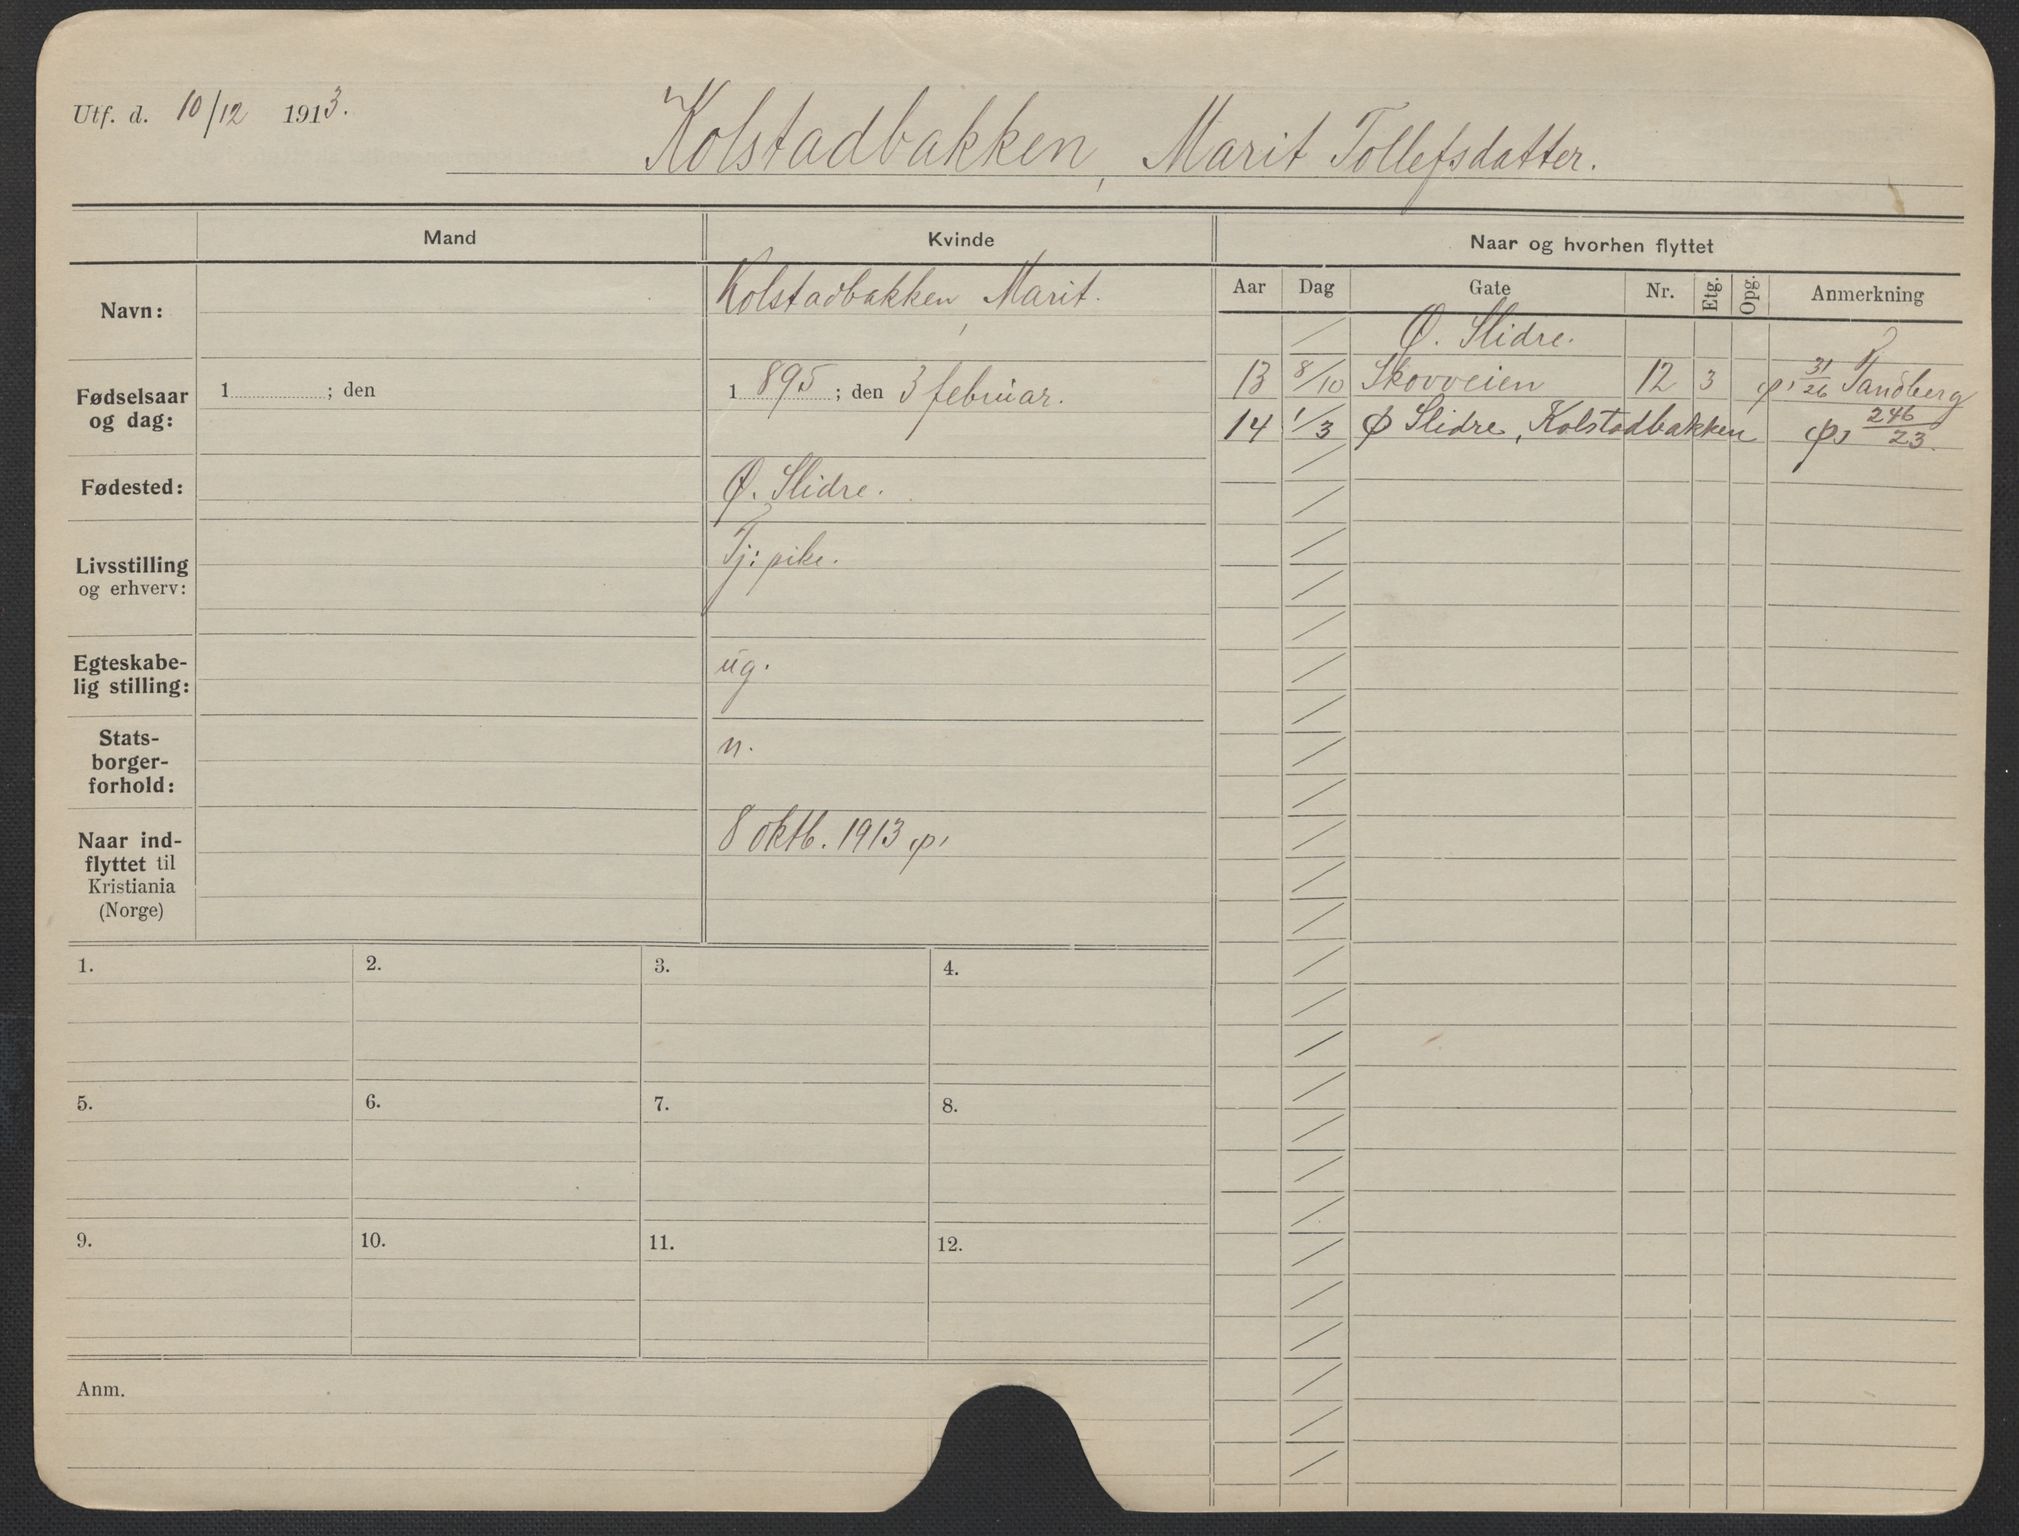 Utf. d. 10/12 1913.
Kolstadbakken, Marit Tollefsdatter.
Mand
Kvinde
Naar og hvorhen flyttet
Navn:
Kolstadbakken, Marit.
Fødselsaar og dag:
1 ; den
1 895 ; den 3 februar.
Fødested:
Ø. Slidre.
Livsstilling og erhverv:
Tj: pike.
Egteskabe-
lig stilling:
ug.
Stats-
borger-
forhold:
n.
Naar ind-
flyttet til
Kristiania
(Norge)
8 oktb. 1913
Aar Dag Gate Nr. Etg. Opg. Anmerkning
Ø. Slidre.
13 8/10 Skovveien 12 3 31/26 Tandberg
14 1/3 Ø Slidre, Kolstadbakken 246/23.
1. 2. 3. 4.
5. 6. 7. 8.
9. 10. 11. 12.
Anm.